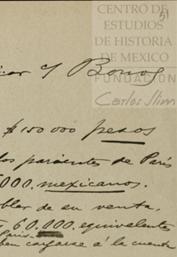 CENTRO DE
ESTUDIOS
DE HISTORIA
DE MEXICO
FUNDACIÓN
Carlos Slim
51
Bonos
$100.000 pesos
los parientes de Paris
000 mexicanos.
de su venta.
60.000 equivalentes
cargarse á la cuenta